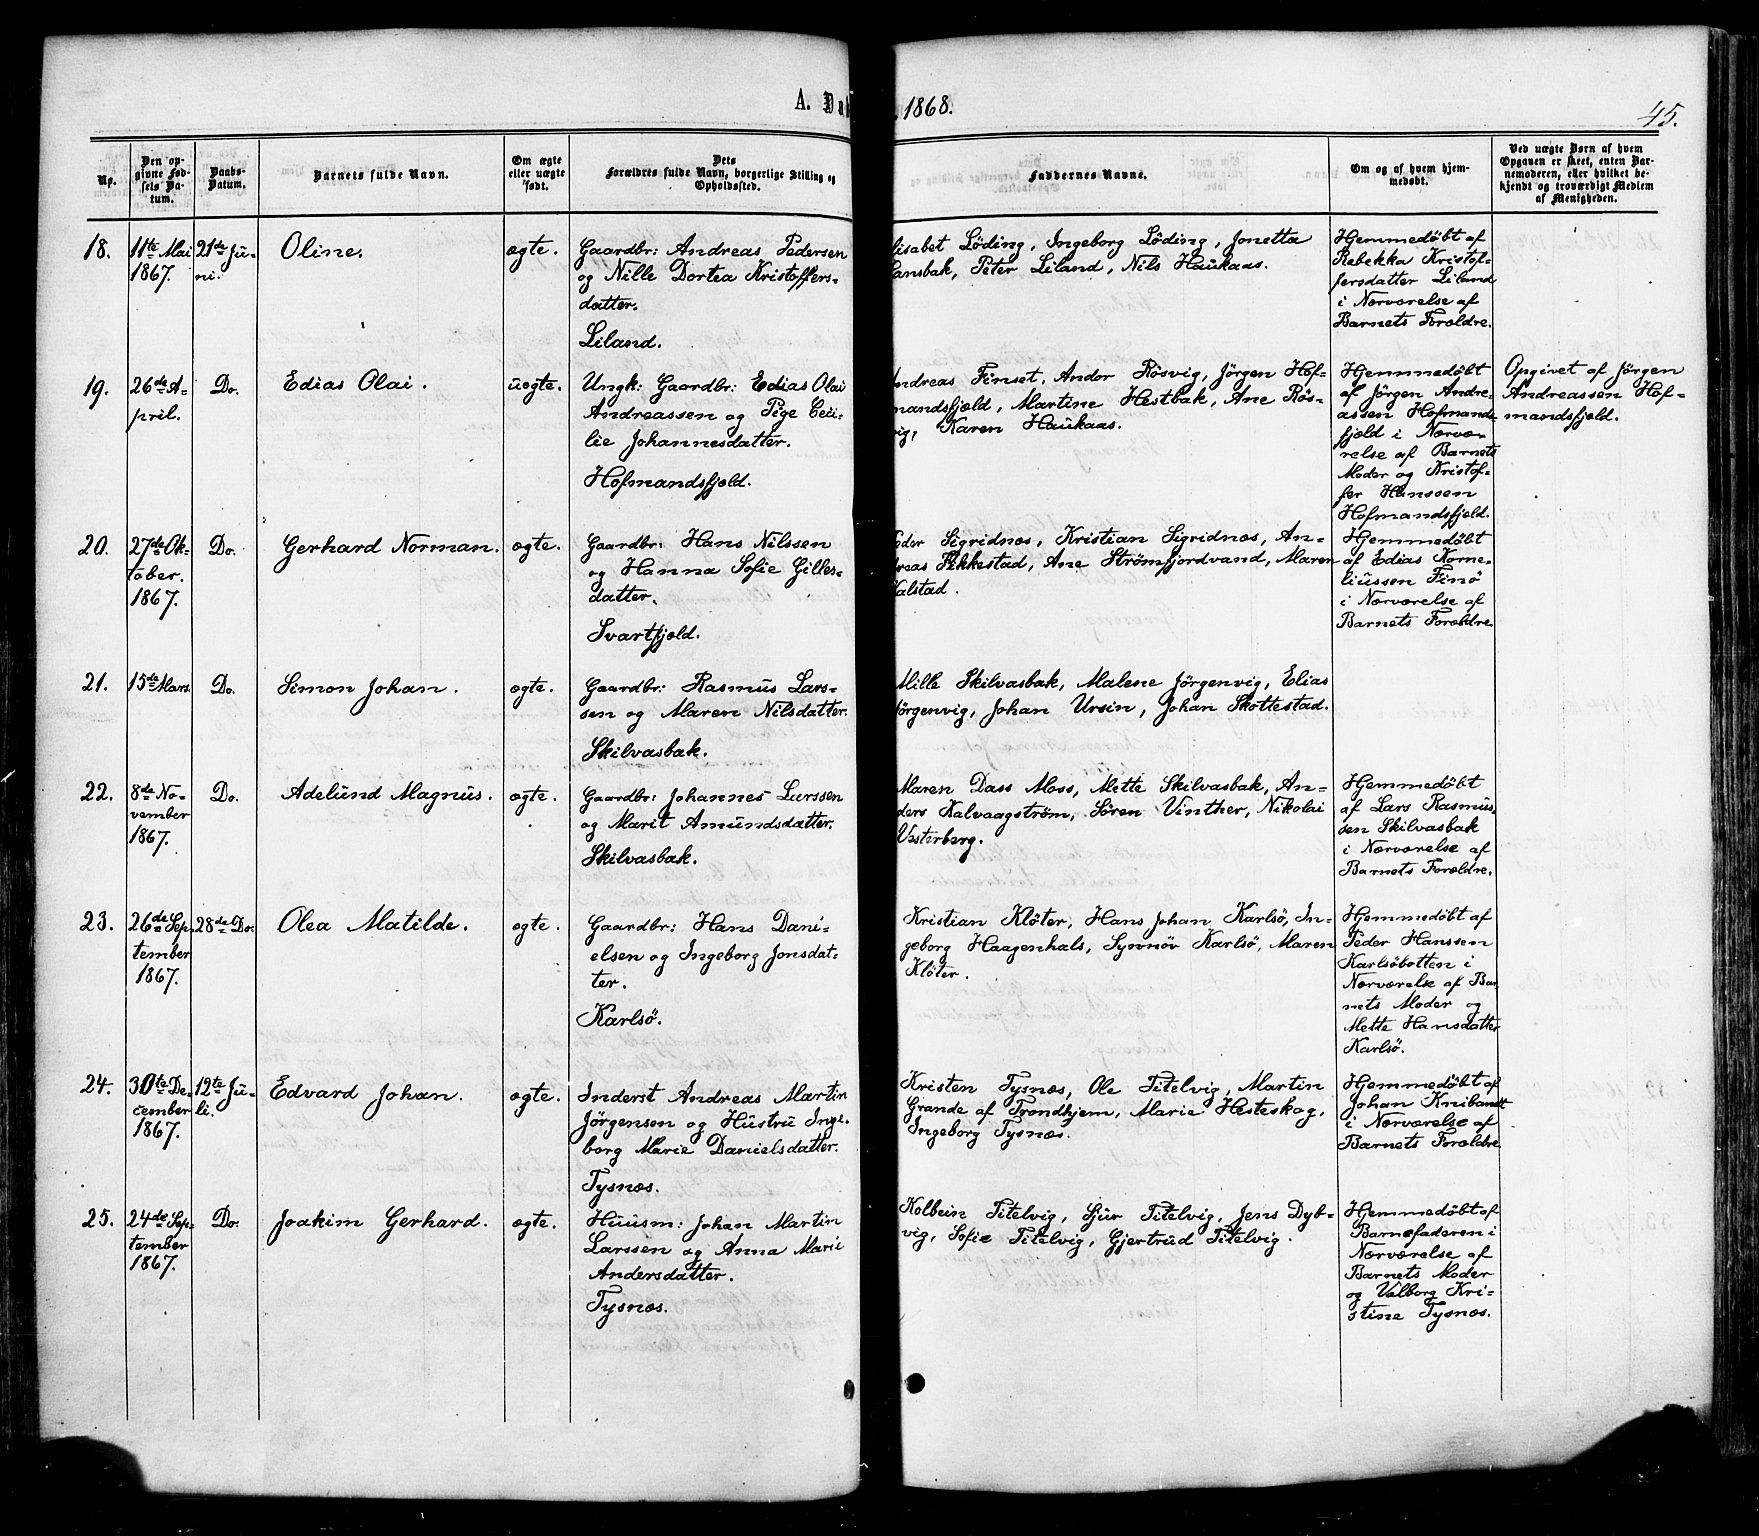 A. Døb
1868.
45.
Nr.
Den opgivne Fødsels Datum.
Daabs-Datum.
Barnets fulde Navn.
Om ægte eller uægte født.
Dets Forældres fulde Navn, borgerlige Stilling og Opholdssted.
Faddernes Navne.
Om og af hvem hjemmedøbt.
Ved uægte Børn af hvem Opgaven er skeet, enten Barnemoderen, eller hvilket bekjendt og troværdigt Medlem af Menigheden.
18.
11te Mai
1867.
21de Ju-
ni.
Oline.
ægte.
Gaardbr: Andreas Pedersen
og Nille Dortea Kristoffers-
datter.
Liland.
lisabet Löding, Ingeborg Löding, Jonetta
ansbak, Peter Liland, Nils Haukaas.
Hjemmedøbt af
Rebekka Kristof-
fersdatter Liland
i Nærværelse af
Barnets Forældre.
19.
26de A-
pril.
Do.
Edias Olai.
uægte.
Ungk: Gaardbr: Edias Olai
Andreassen og Pige Ceci-
lie Johannesdatter.
Hofmandsfjæld.
Andreas Finset, Andor Rösvig, Jörgen Hof-
mandsfjæld, Martine Hestbak, Ane Rös-
vig, Karen Haukaas.
Hjemmedøbt
af Jörgen Andre-
assen Hofmands-
fjæld i Nærvæ-
relse af Barnets
Moder og Kristof-
fer Hanssen
Hofmandsfjæld.
Opgivet af Jörgen
Andreassen Hof-
mandsfjæld.
20.
27de Ok-
tober.
1867.
Do.
Gerhard Norman.
ægte.
Gaardbr: Hans Nilssen
og Hanna Sofie Gilles-
datter.
Svartfjæld.
eder Sigridnæs, Kristian Sigridnæs, An-
dreas Fikkestad, Ane Strömfjordvand, Maren
Kalstad.
Hjemmedøbt
af Edias Korne-
liussen Finö
i Nærværelse af
Barnets Forældre.
21.
15de Mars.
Do.
Simon Johan.
ægte.
Gaardbr: Rasmus Lars-
sen og Maren Nilsdatter.
Skilvasbak.
Mille Skilvasbak, Malene Jörgenvig, Elias
Jörgenvig, Johan Ursin, Johan Skottestad.
22.
8de No-
vember
1867.
Do.
Adelund Magnus.
ægte.
Gaardbr: Johannes Larssen
og Marit Amundsdatter.
Skilvasbak.
Maren Dass Moss, Mette Skilvasbak, An-
ders Kalvaagström, Sören Vinther, Nikolai
Vesterberg.
Hjemmedøbt
af Lars Rasmus-
sen Skilvasbak
i Nærværelse af
Barnets Forældre.
23.
26de Sep-
tember
1867.
28de Do.
Olea Matilde.
ægte.
Gaardbr: Hans Dani-
elsen og Ingeborg Jonsdat-
ter.
Karlsö.
Kristian Klöter, Hans Johan Karlsö, In-
geborg Haagenhals, Synnöv Karlsö, Maren
Klöter.
Hjemmedøbt af
Peder Hanssen
Karlsöbotten i
Nærværelse af Bar-
nets Moder og
Mette Hansdatter
Karlsö.
24.
30te De-
cember
1867.
12te Ju-
li.
Edvard Johan.
ægte.
Inderst Andreas Martin
Jörgensen og Hustru Inge-
borg Marie Danielsdatter.
Tysnæs.
Kristen Tysnæs, Ole Titelvig, Martin
Grande af Trondhjem, Marie Hesteskog,
Ingeborg Tysnæs.
Hjemmedøbt af
Johan Knibrandt
i Nærværelse af
Barnets Forældre
25.
24de Sep-
tember
1867.
Do.
Joakim Gerhard.
ægte.
Huusm: Johan Martin
Larssen og Anna Marie
Andersdatter.
Tysnæs.
Kolbein Titelvig, Sjur Titelvig, Jens Dyb-
vig, Sofie Titelvig, Gjertrud Titelvig.
Hjemmedøbt af
Barnefaderen i
Nærværelse af
Barnets Moder
og Valborg Kri-
stine Tysnæs.